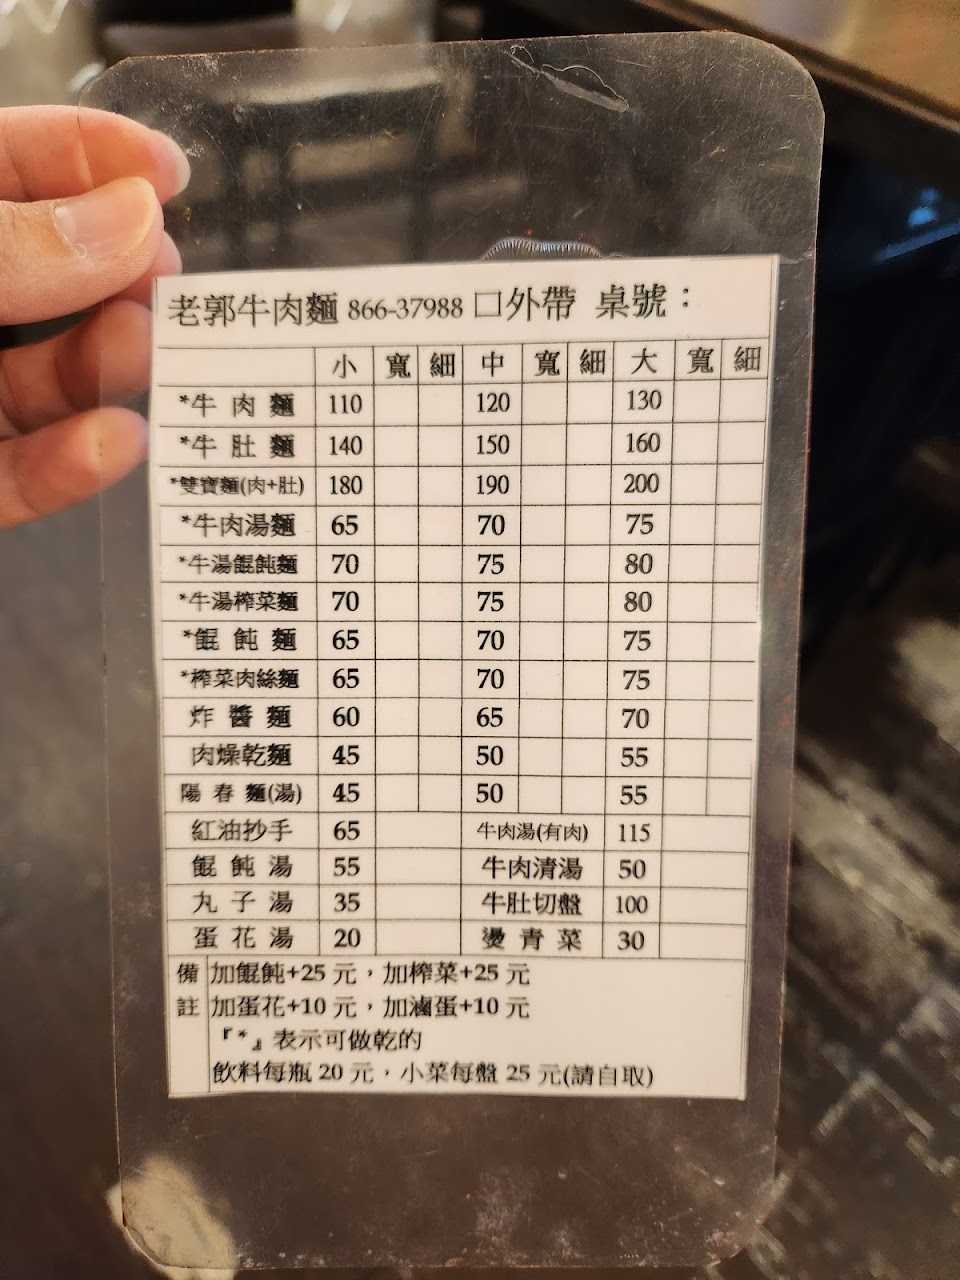 老郭牛肉麵 866-37988 口外帶 桌號：
小 寬 細 中 寬 細 大 寬 細
*牛肉麵 110 120 130
*牛肚麵 140 150 160
*雙寶麵(肉+肚) 180 190 200
*牛肉湯麵 65 70 75
*牛湯餛飩麵 70 75 80
*牛湯榨菜麵 70 75 80
*餛飩麵 65 70 75
*榨菜肉絲麵 65 70 75
炸醬麵 60 65 70
肉燥乾麵 45 50 55
陽春麵(湯) 45 50 55
紅油抄手 65 牛肉湯(有肉) 115
餛飩湯 55 牛肉清湯 50
丸子湯 35 牛肚切盤 100
蛋花湯 20 燙青菜 30
備註 加餛飩+25 元，加榨菜+25 元
加蛋花+10 元，加滷蛋+10 元
『*』表示可做乾的
飲料每瓶 20 元，小菜每盤 25 元(請自取)